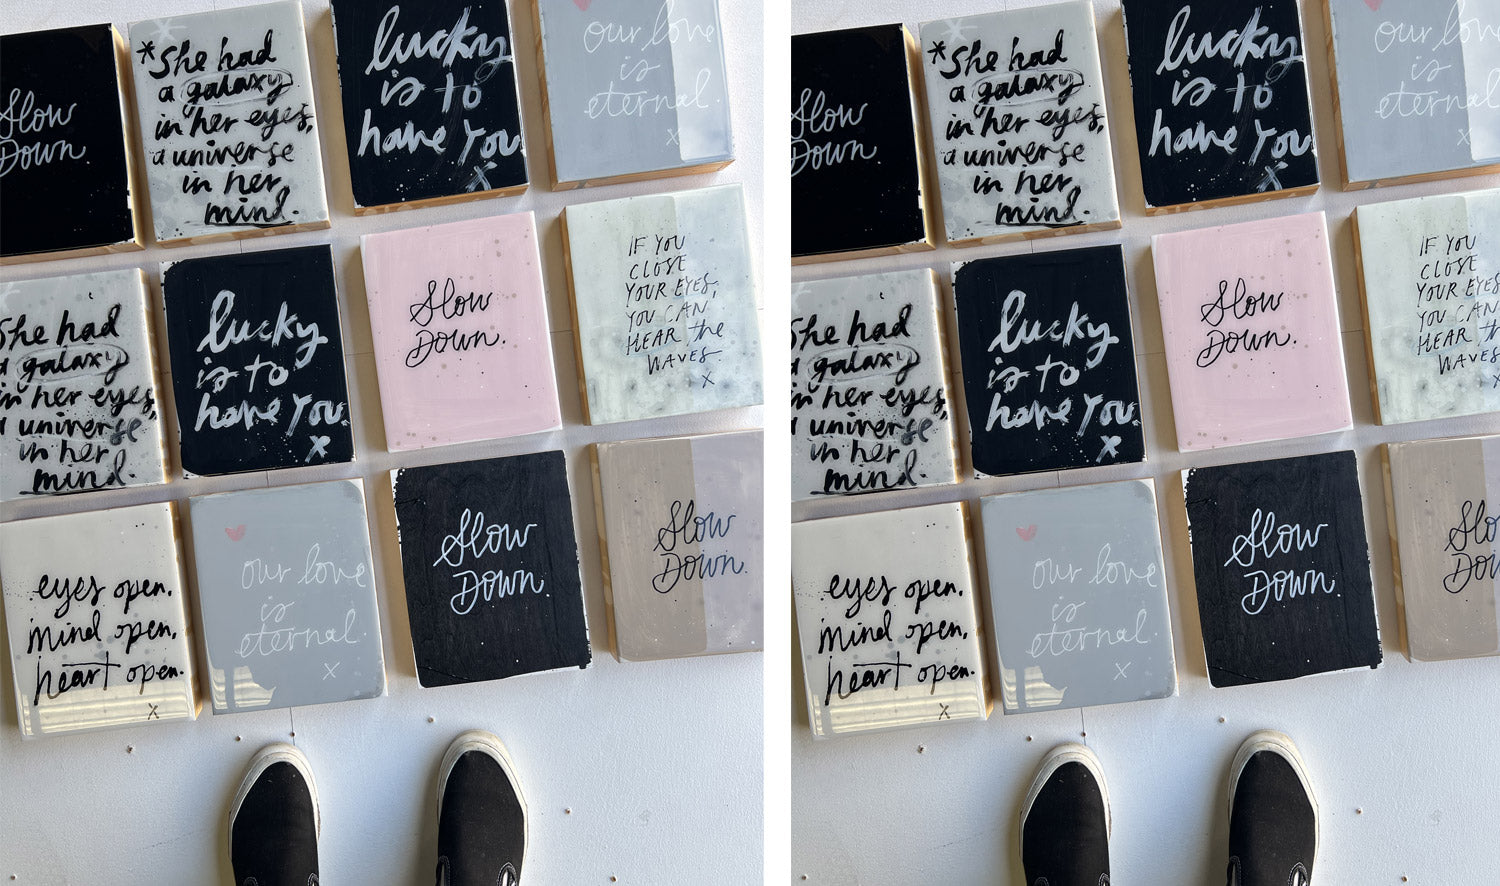 Slow
Down.
*She had
a galaxy
in her eyes,
a universe
in her
mind.
lucky
is to
have You.
x
our love
is
eternal.
x
She had
a galaxy
in her eyes,
a universe
in her
mind.
lucky
is to
have You.
x
Slow
Down.
IF YOU
CLOSE
YOUR EYES,
YOU CAN
HEAR the
WAVES
x
eyes open.
mind open,
heart open.
x
our love
is
eternal.
x
Slow
Down.
Slow
Down.
Slow
Down.
*She had
a galaxy
in her eyes,
a universe
in her
mind.
lucky
is to
have You
x
our love
is
eternal.
x
She had
a galaxy
in her eyes,
a universe
in her
mind.
lucky
is to
have You.
x
Slow
Down.
IF YOU
CLOSE
YOUR EYES
YOU CAN
HEAR the
WAVES
x
eyes open.
mind open,
heart open.
x
our love
is
eternal.
x
Slow
Down.
Slow
Down